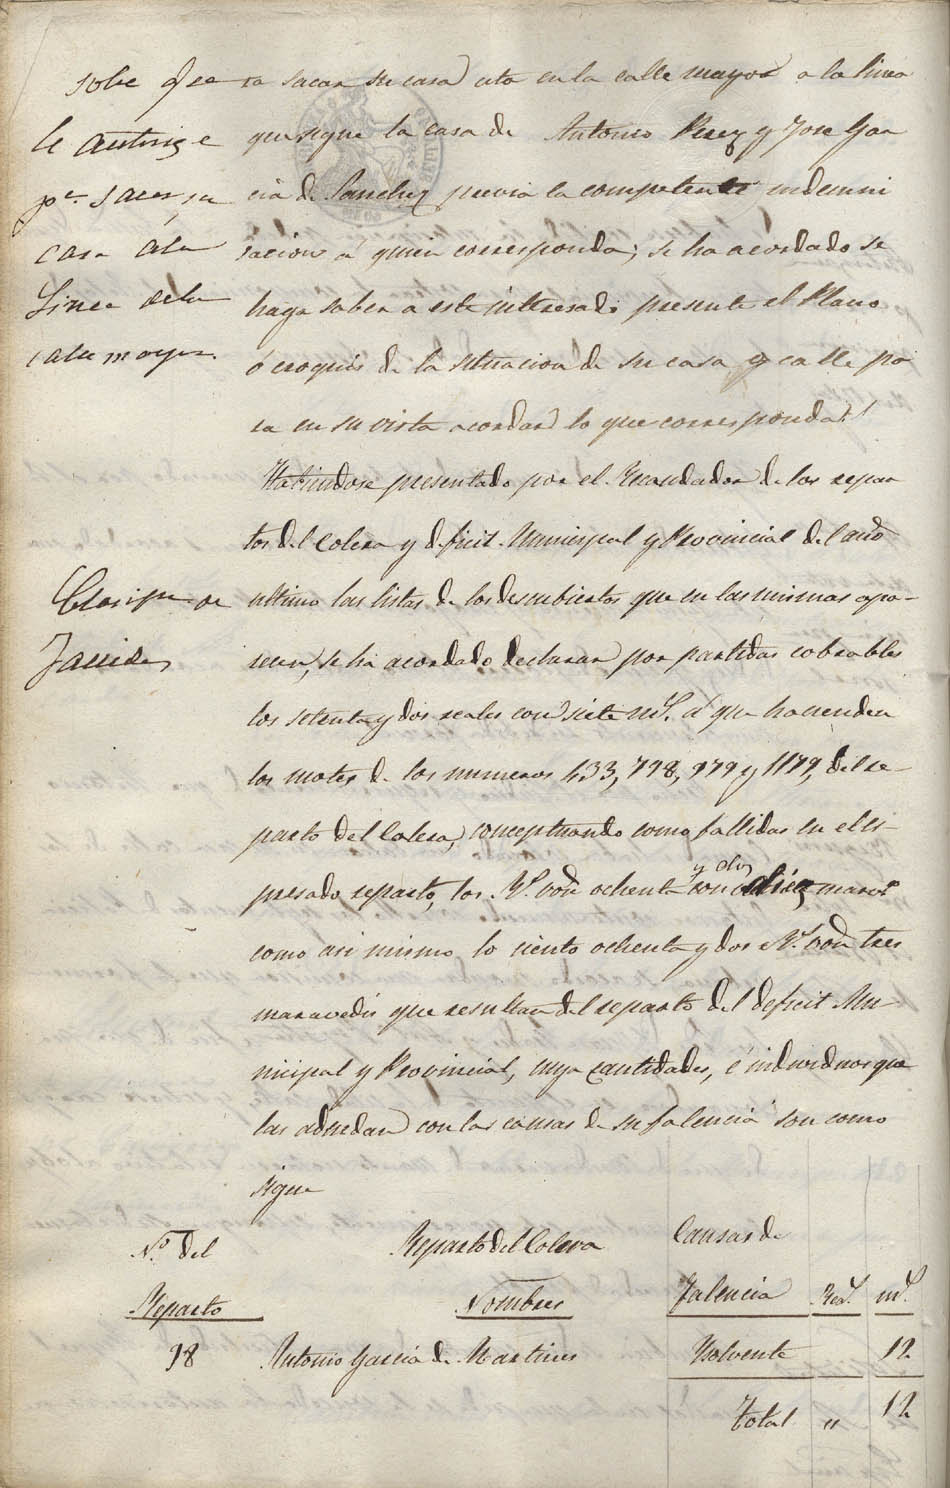 sobe qe se
le autorize
pa. sacar su
casa á la
Linea de la
calle mayor.
ra sacar su casa sita en la calle mayor a la linea
que sigue la casa de Antonio Perez y Jose Gar
cia de Sanchez previa la competente indemni
sacion á quien corresponda; se ha acordado se
haga saber a este interesado presente el Plano
ó croquis de la situacion de su casa y calle pa
ra en su vista acordar lo que corresponda.
Habiendose presentado por el Recaudador de los repar
tos del Colera y deficit Municipal y Provincial del año
Fallidos
ultimo las listas de los descubiertos que en las mismas apa-
recen, se ha acordado declarar por partidas cobrables
los setenta y dos reales con siete ms. á que hacienden
las cuotas de los numeros 433, 798, 979 y 1179, del re-
parto del Colera, conceptuando como fallidas en el es-
presado reparto, los Rs. von ochenta y dos con diez maravs
como asi mismo lo ciento ochenta y dos Rs. von tres
maravedis que resultan del reparto del deficit Mu-
nicipal y Provincial, cuya cantidades, é individuos que
las adeudan con las causas de su falencia son como
sigue
No. del Reparto del Colera Causas de
Reparto Nombres Falencia Res. ms.
98 Antonio Garcia de Martines Ynsolvente 12
Total " 12